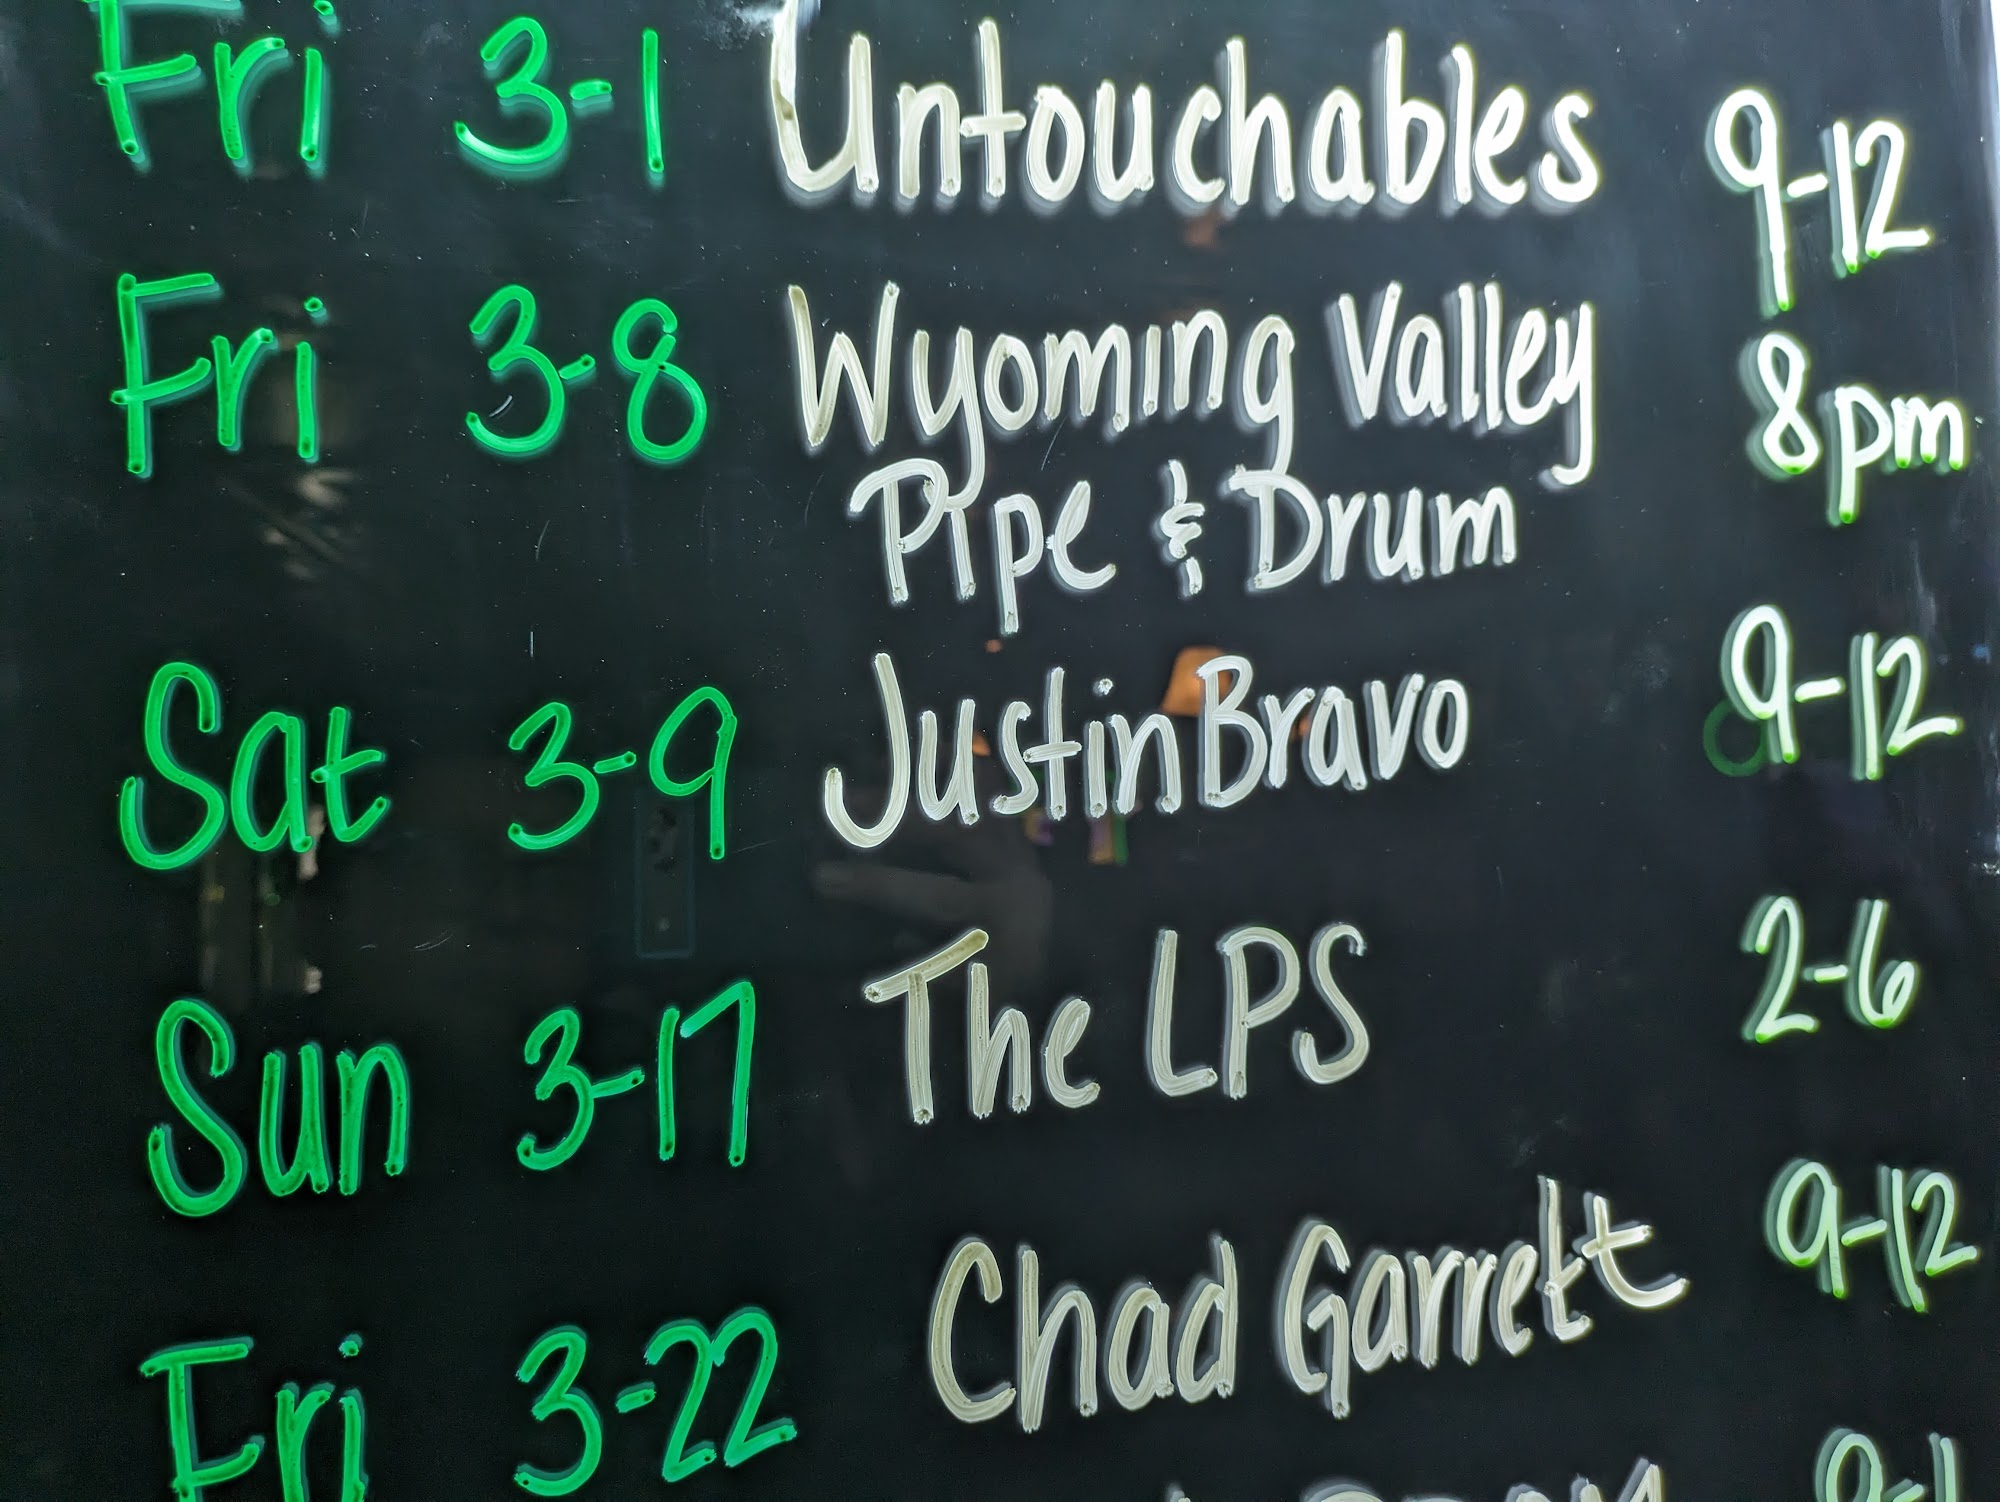 Fri 3-1 Untouchables 9-12
Fri 3-8 Wyoming Valley 8pm
Pipe & Drum
Sat 3-9 Justin Bravo 9-12
Sun 3-17 The LPS 2-6
Fri 3-22 Chad Garrett 9-12